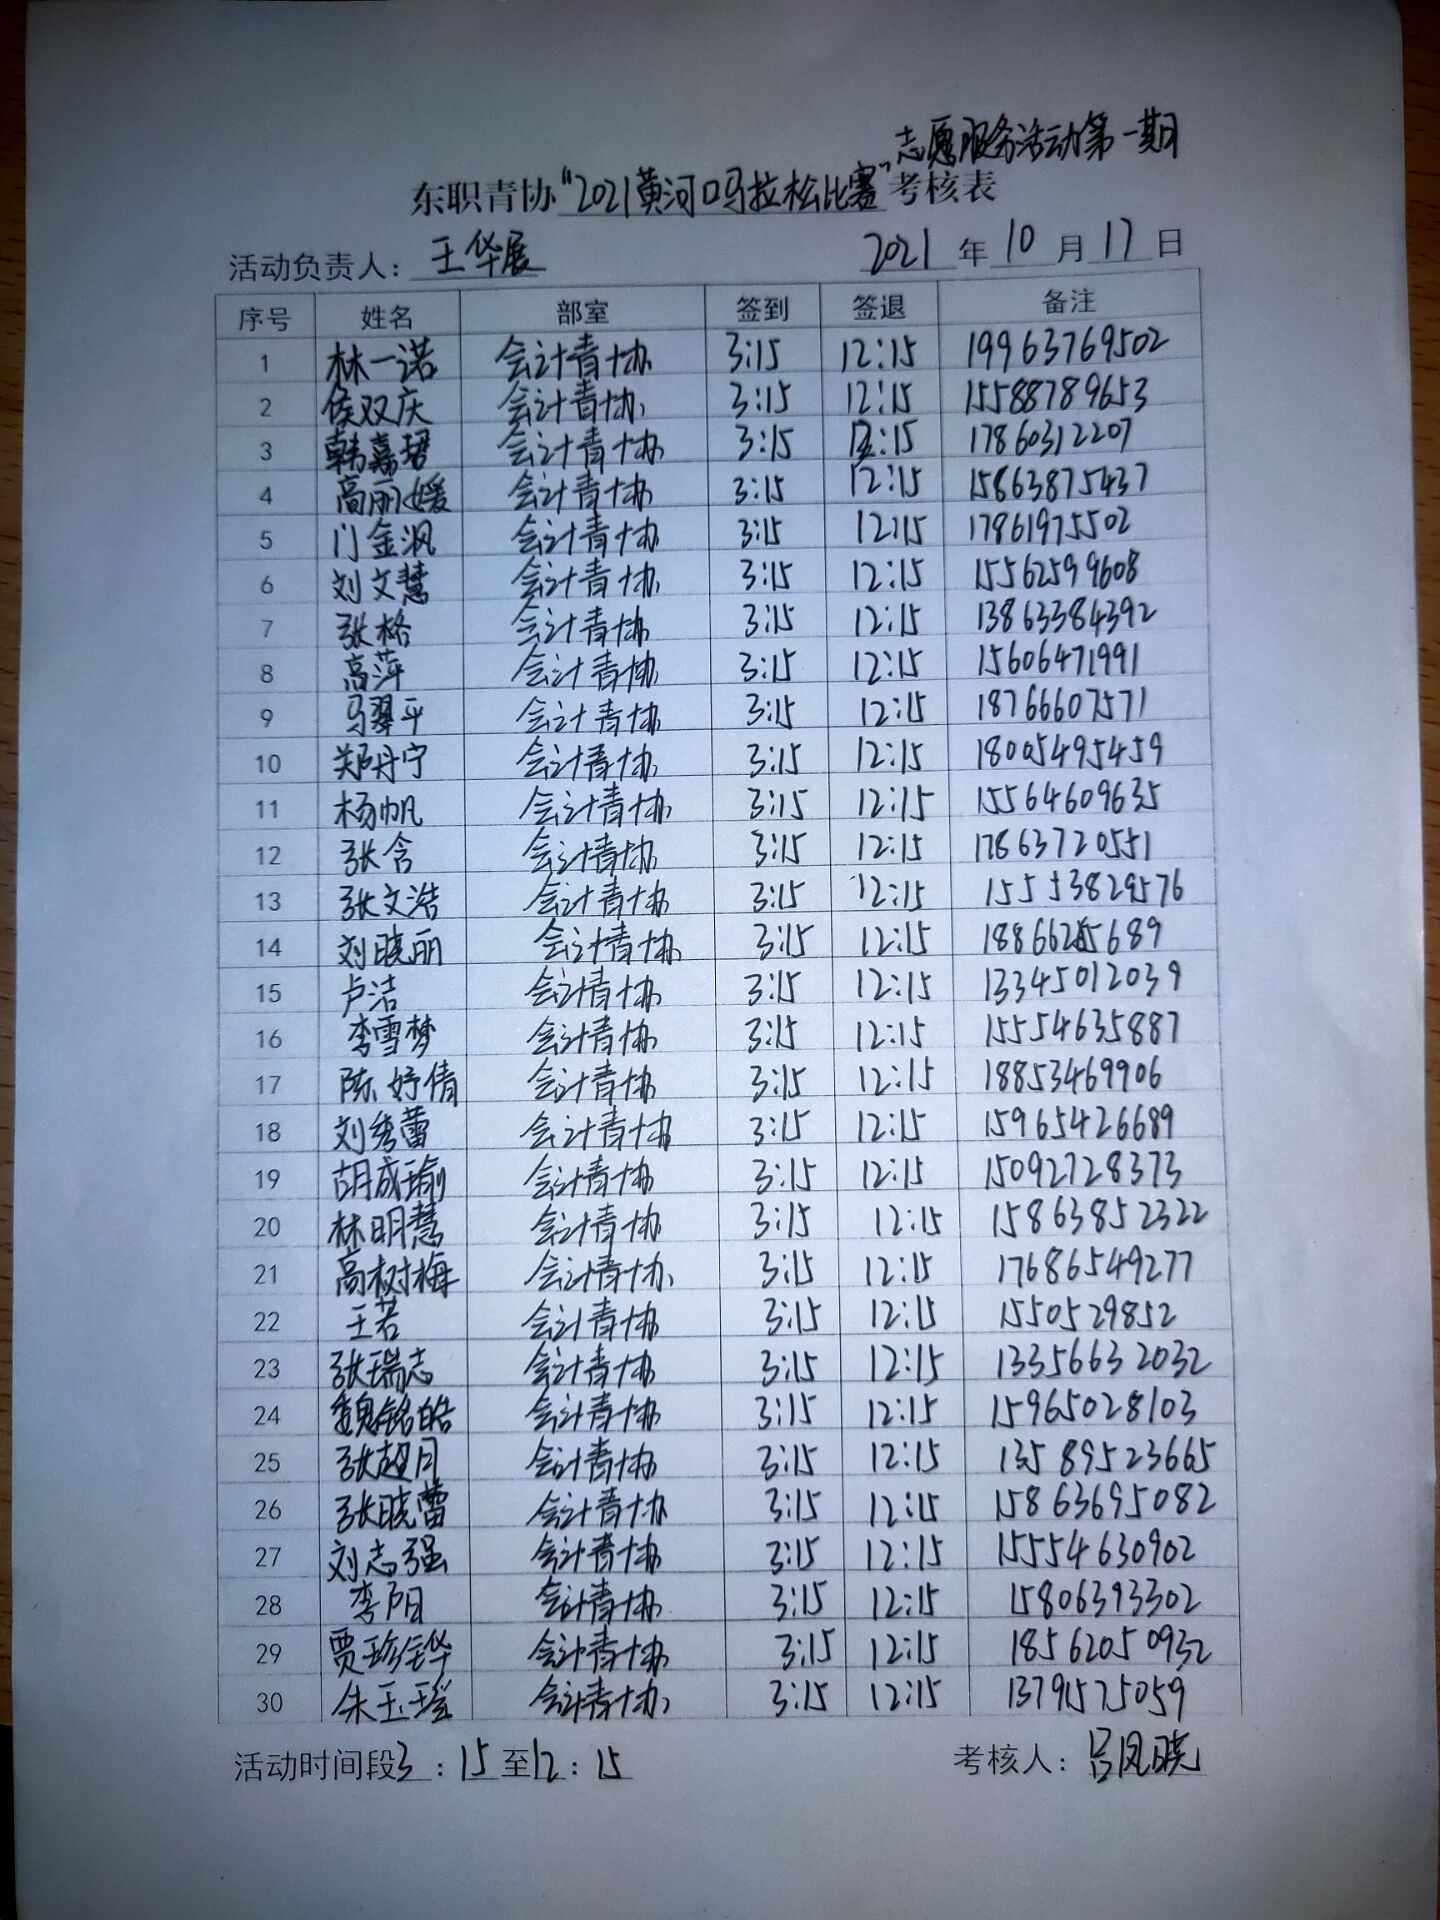 志愿服务活动第一期
东职青协“2021黄河口马拉松比赛”考核表
活动负责人：王华展 2021年10月17日
序号 姓名 部室 签到 签退 备注
1 林一诺 会计青协 3:15 12:15 19963769502
2 侯双庆 会计青协 3:15 12:15 15588789653
3 韩嘉珺 会计青协 3:15 12:15 17860312207
4 高丽媛 会计青协 3:15 12:15 15863875437
5 门金沨 会计青协 3:15 12:15 17861975502
6 刘文慧 会计青协 3:15 12:15 15562599608
7 张格 会计青协 3:15 12:15 13863384392
8 高萍 会计青协 3:15 12:15 15606471991
9 马翠平 会计青协 3:15 12:15 18766607571
10 郑丹宁 会计青协 3:15 12:15 18005495459
11 杨帆 会计青协 3:15 12:15 15564609635
12 张含 会计青协 3:15 12:15 17863720551
13 张文浩 会计青协 3:15 12:15 15553829576
14 刘晓丽 会计青协 3:15 12:15
15 卢洁 会计青协 3:15 12:15 13345012039
16 李雪梦 会计青协 3:15 12:15 15554635887
17 陈妤倩 会计青协 3:15 12:15 18853469906
18 刘秀蕾 会计青协 3:15 12:15 15965426689
19 胡成瑜 会计青协 3:15 12:15 15092728373
20 林明慧 会计青协 3:15 12:15 15863852322
21 高树梅 会计青协 3:15 12:15 17686549277
22 王若 会计青协 3:15 12:15 1550529852
23 张瑞志 会计青协 3:15 12:15 13356632032
24 魏铭皓 会计青协 3:15 12:15 15965028103
25 张超月 会计青协 3:15 12:15 13589523665
26 张晓蕾 会计青协 3:15 12:15 15863695082
27 刘志强 会计青协 3:15 12:15 15554630902
28 李阳 会计青协 3:15 12:15 15806393302
29 贾珍铧 会计青协 3:15 12:15 18562050932
30 朱玉瑶 会计青协 3:15 12:15 13791575059
活动时间段3：15至12：15 考核人：吕凤晓